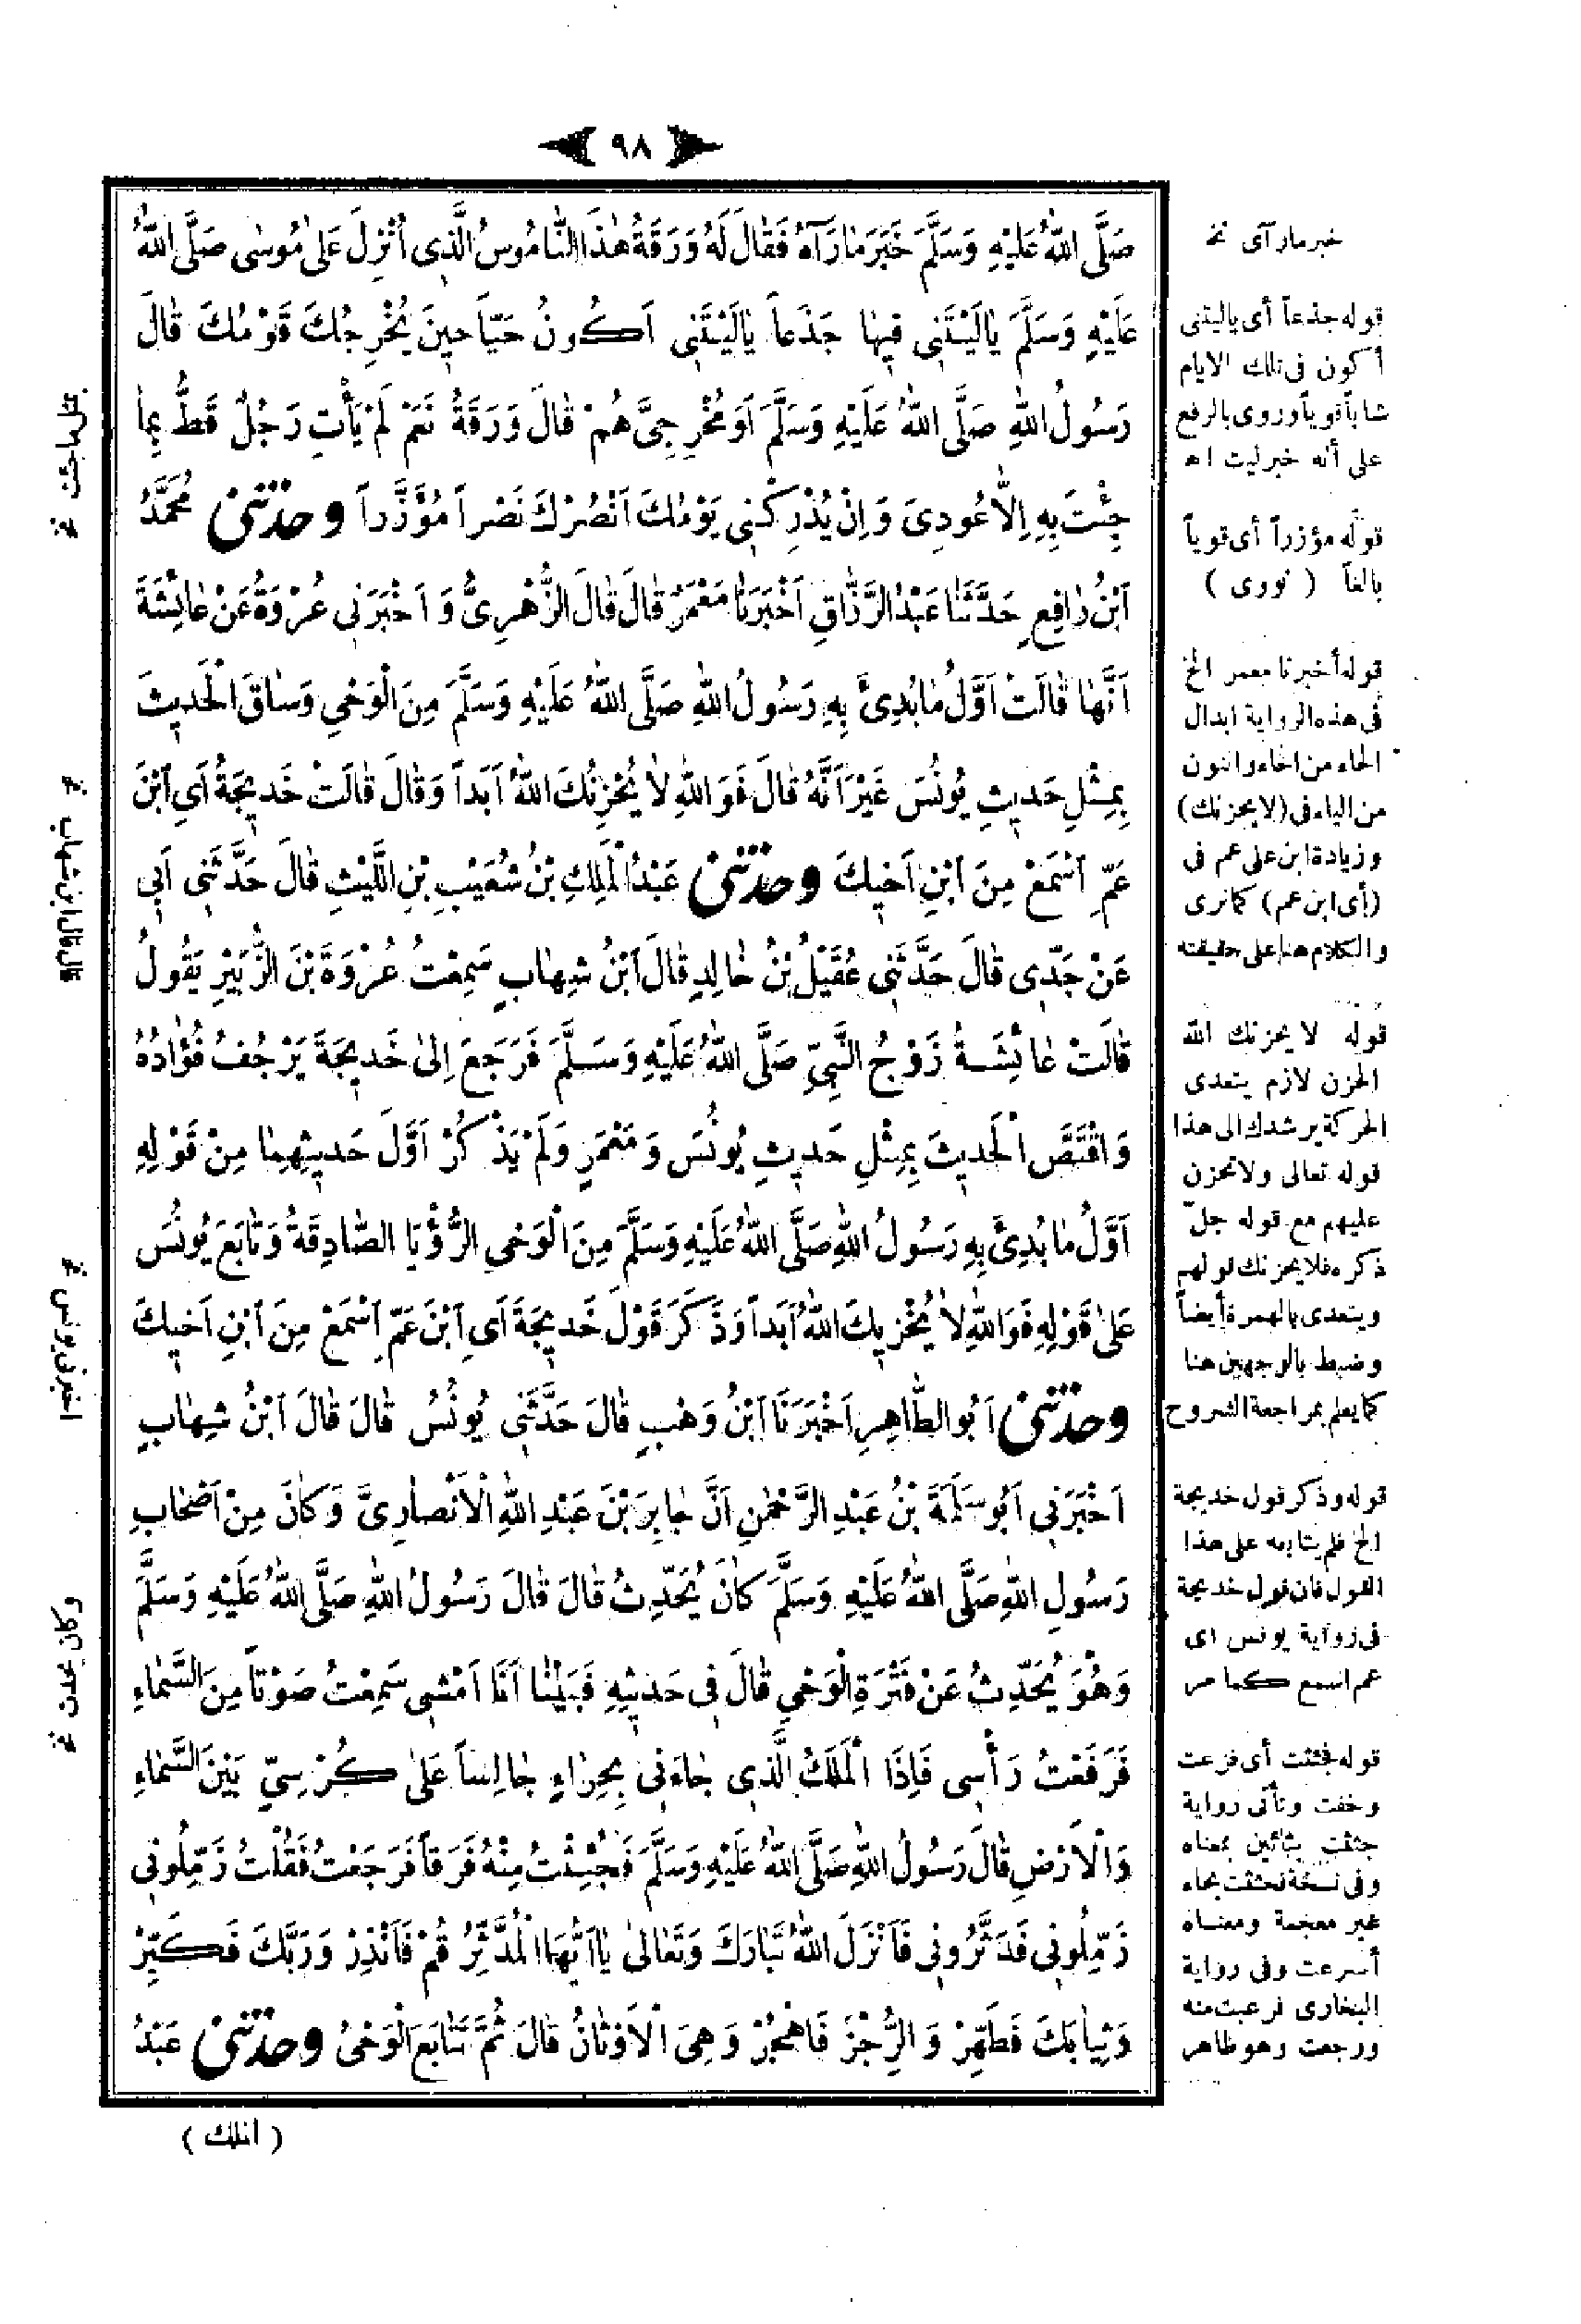 ﴿ ٩٨ ﴾
صَلَّى اللّٰهُ عَلَيْهِ وَسَلَّمَ خَبَرَ مَارَآهُ فَقَالَ لَهُ وَرَقَةُ هٰذَا النَّامُوسُ الَّذِى أُنْزِلَ عَلىٰ مُوسٰى صَلَّى اللّٰهُ
عَلَيْهِ وَسَلَّمَ يَالَيْتَنِى فِيهَا جَذَعاً يَالَيْتَنِى اَكُونُ حَيّاً حِينَ يُخْرِجُكَ قَوْمُكَ قَالَ
رَسُولُ اللّٰهِ صَلَّى اللّٰهُ عَلَيْهِ وَسَلَّمَ اَوَمُخْرِجِىَّ هُمْ قَالَ وَرَقَةُ نَعَمْ لَمْ يَأْتِ رَجُلٌ قَطُّ بِمَا
جِئْتَ بِهِ اِلَّا عُودِىَ وَاِنْ يُدْرِكْنِى يَوْمُكَ اَنْصُرْكَ نَصْراً مُؤَزَّراً وحدثنى مُحَمَّدُ
اَبْنُ رَافِعٍ حَدَّثَنَا عَبْدُ الرَّزَّاقِ اَخْبَرَنَا مَعْمَرٌ قَالَ قَالَ الزُّهْرِىُّ وَاَخْبَرَنِى عُرْوَةُ عَنْ عَائِشَةَ
اَنَّهَا قَالَتْ اَوَّلُ مَا بُدِئَ بِهِ رَسُولُ اللّٰهِ صَلَّى اللّٰهُ عَلَيْهِ وَسَلَّمَ مِنَ الْوَحْىِ وَسَاقَ الْحَدِيثَ
بِمِثْلِ حَدِيثِ يُونُسَ غَيْرَ اَنَّهُ قَالَ فَوَاللّٰهِ لَا يُحْزِنُكَ اللّٰهُ اَبَداً وَقَالَ قَالَتْ خَدِيجَةُ اَىِ اَبْنَ
عَمِّ اَسْمَعْ مِنَ اَبْنِ اَخِيكَ وحدثنى عَبْدُ الْمَلِكِ بْنُ شُعَيْبِ بْنِ اللَّيْثِ قَالَ حَدَّثَنِى اَبِى
عَنْ جَدِّى قَالَ حَدَّثَنِى عُقَيْلُ بْنُ خَالِدٍ قَالَ اَبْنُ شِهَابٍ سَمِعْتُ عُرْوَةَ بْنَ الزُّبَيْرِ يَقُولُ
قَالَتْ عَائِشَةُ زَوْجُ النَّبِىِّ صَلَّى اللّٰهُ عَلَيْهِ وَسَلَّمَ فَرَجَعَ اِلىٰ خَدِيجَةَ يَرْجُفُ فُؤَادُهُ
وَاقْتَصَّ الْحَدِيثَ بِمِثْلِ حَدِيثِ يُونُسَ وَمَعْمَرٍ وَلَمْ يَذْكُرْ اَوَّلَ حَدِيثِهِمَا مِنْ قَوْلِهِ
اَوَّلُ مَا بُدِئَ بِهِ رَسُولُ اللّٰهِ صَلَّى اللّٰهُ عَلَيْهِ وَسَلَّمَ مِنَ الْوَحْىِ الرُّؤْيَا الصَّادِقَةُ وَتَابَعَ يُونُسَ
عَلىٰ قَوْلِهِ فَوَاللّٰهِ لَا يُخْزِيكَ اللّٰهُ اَبَداً وَذَكَرَ قَوْلَ خَدِيجَةَ اَىِ اَبْنَ عَمِّ اَسْمَعْ مِنَ اَبْنِ اَخِيكَ
وحدثنى اَبُوالطَّاهِرِ اَخْبَرَنَا اَبْنُ وَهْبٍ قَالَ حَدَّثَنِى يُونُسُ قَالَ قَالَ اَبْنُ شِهَابٍ
اَخْبَرَنِى اَبُوسَلَمَةَ بْنُ عَبْدِ الرَّحْمٰنِ اَنَّ جَابِرَ بْنَ عَبْدِ اللّٰهِ الْاَنْصَارِىَّ وَكَانَ مِنْ اَصْحَابِ
رَسُولِ اللّٰهِ صَلَّى اللّٰهُ عَلَيْهِ وَسَلَّمَ كَانَ يُحَدِّثُ قَالَ قَالَ رَسُولُ اللّٰهِ صَلَّى اللّٰهُ عَلَيْهِ وَسَلَّمَ
وَهُوَ يُحَدِّثُ عَنْ فَتْرَةِ الْوَحْىِ قَالَ فِى حَدِيثِهِ فَبَيْنَا اَنَا اَمْشِى سَمِعْتُ صَوْتاً مِنَ السَّمَاءِ
فَرَفَعْتُ رَأْسِى فَاِذَا الْمَلَكُ الَّذِى جَاءَنِى بِحِرَاءٍ جَالِساً عَلىٰ كُرْسِىٍّ بَيْنَ السَّمَاءِ
وَالْاَرْضِ قَالَ رَسُولُ اللّٰهِ صَلَّى اللّٰهُ عَلَيْهِ وَسَلَّمَ فَجُئِثْتُ مِنْهُ فَرَقاً فَرَجَعْتُ فَقُلْتُ زَمِّلُونِى
زَمِّلُونِى فَدَثَّرُونِى فَاَنْزَلَ اللّٰهُ تَبَارَكَ وَتَعَالىٰ يَااَيُّهَا الْمُدَّثِّرُ قُمْ فَاَنْذِرْ وَرَبَّكَ فَكَبِّرْ
وَثِيَابَكَ فَطَهِّرْ وَالرُّجْزَ فَاهْجُرْ وَهِىَ الْاَوْثَانُ قَالَ ثُمَّ تَتَابَعَ الْوَحْىُ وحدثنى عَبْدُ
( الملك )
خبر مار آى نخ
قوله جذعاً أى ياليتنى
أكون فى تلك الايام
شاباً قوياً وروى بالرفع
على أنه خبر ليت اه
قوله مؤزراً أى قوياً
بالغاً ( نووى )
قوله أخبرنا معمر الخ
فى هذه الرواية ابدال
الحاء من الخاء والنون
من الياء فى (لا يحزنك)
وزيادة ابن على عم فى
(أى ابن عم) كما ترى
والكلام هنا على حقيقته
قوله لا يحزنك الله
الحزن لازم يتعدى
بالحركة يرشدك الى هذا
قوله تعالى ولا تحزن
عليهم مع قوله جل
ذكره فلا يحزنك قولهم
ويتعدى بالهمزة أيضاً
وضبط بالوجهين هنا
كما يعلم بمراجعة الشروح
قوله وذكر قول خديجة
الخ فلم يتابعه على هذا
القول فان قول خديجة
فى رواية يونس اى
عم اسمع كما مر
قوله فجئثت أى فزعت
وخفت وتأتى رواية
جثثت بثائين بمعناه
وفى نسخة فحثثت بحاء
غير معجمة ومعناه
أسرعت وفى رواية
البخارى فرعبت منه
ورجعت وهو ظاهر
بمثل ما جئت نخ
قال قال ابن شهاب نخ
اخبرنى يونس نخ
وكان يحدث نخ